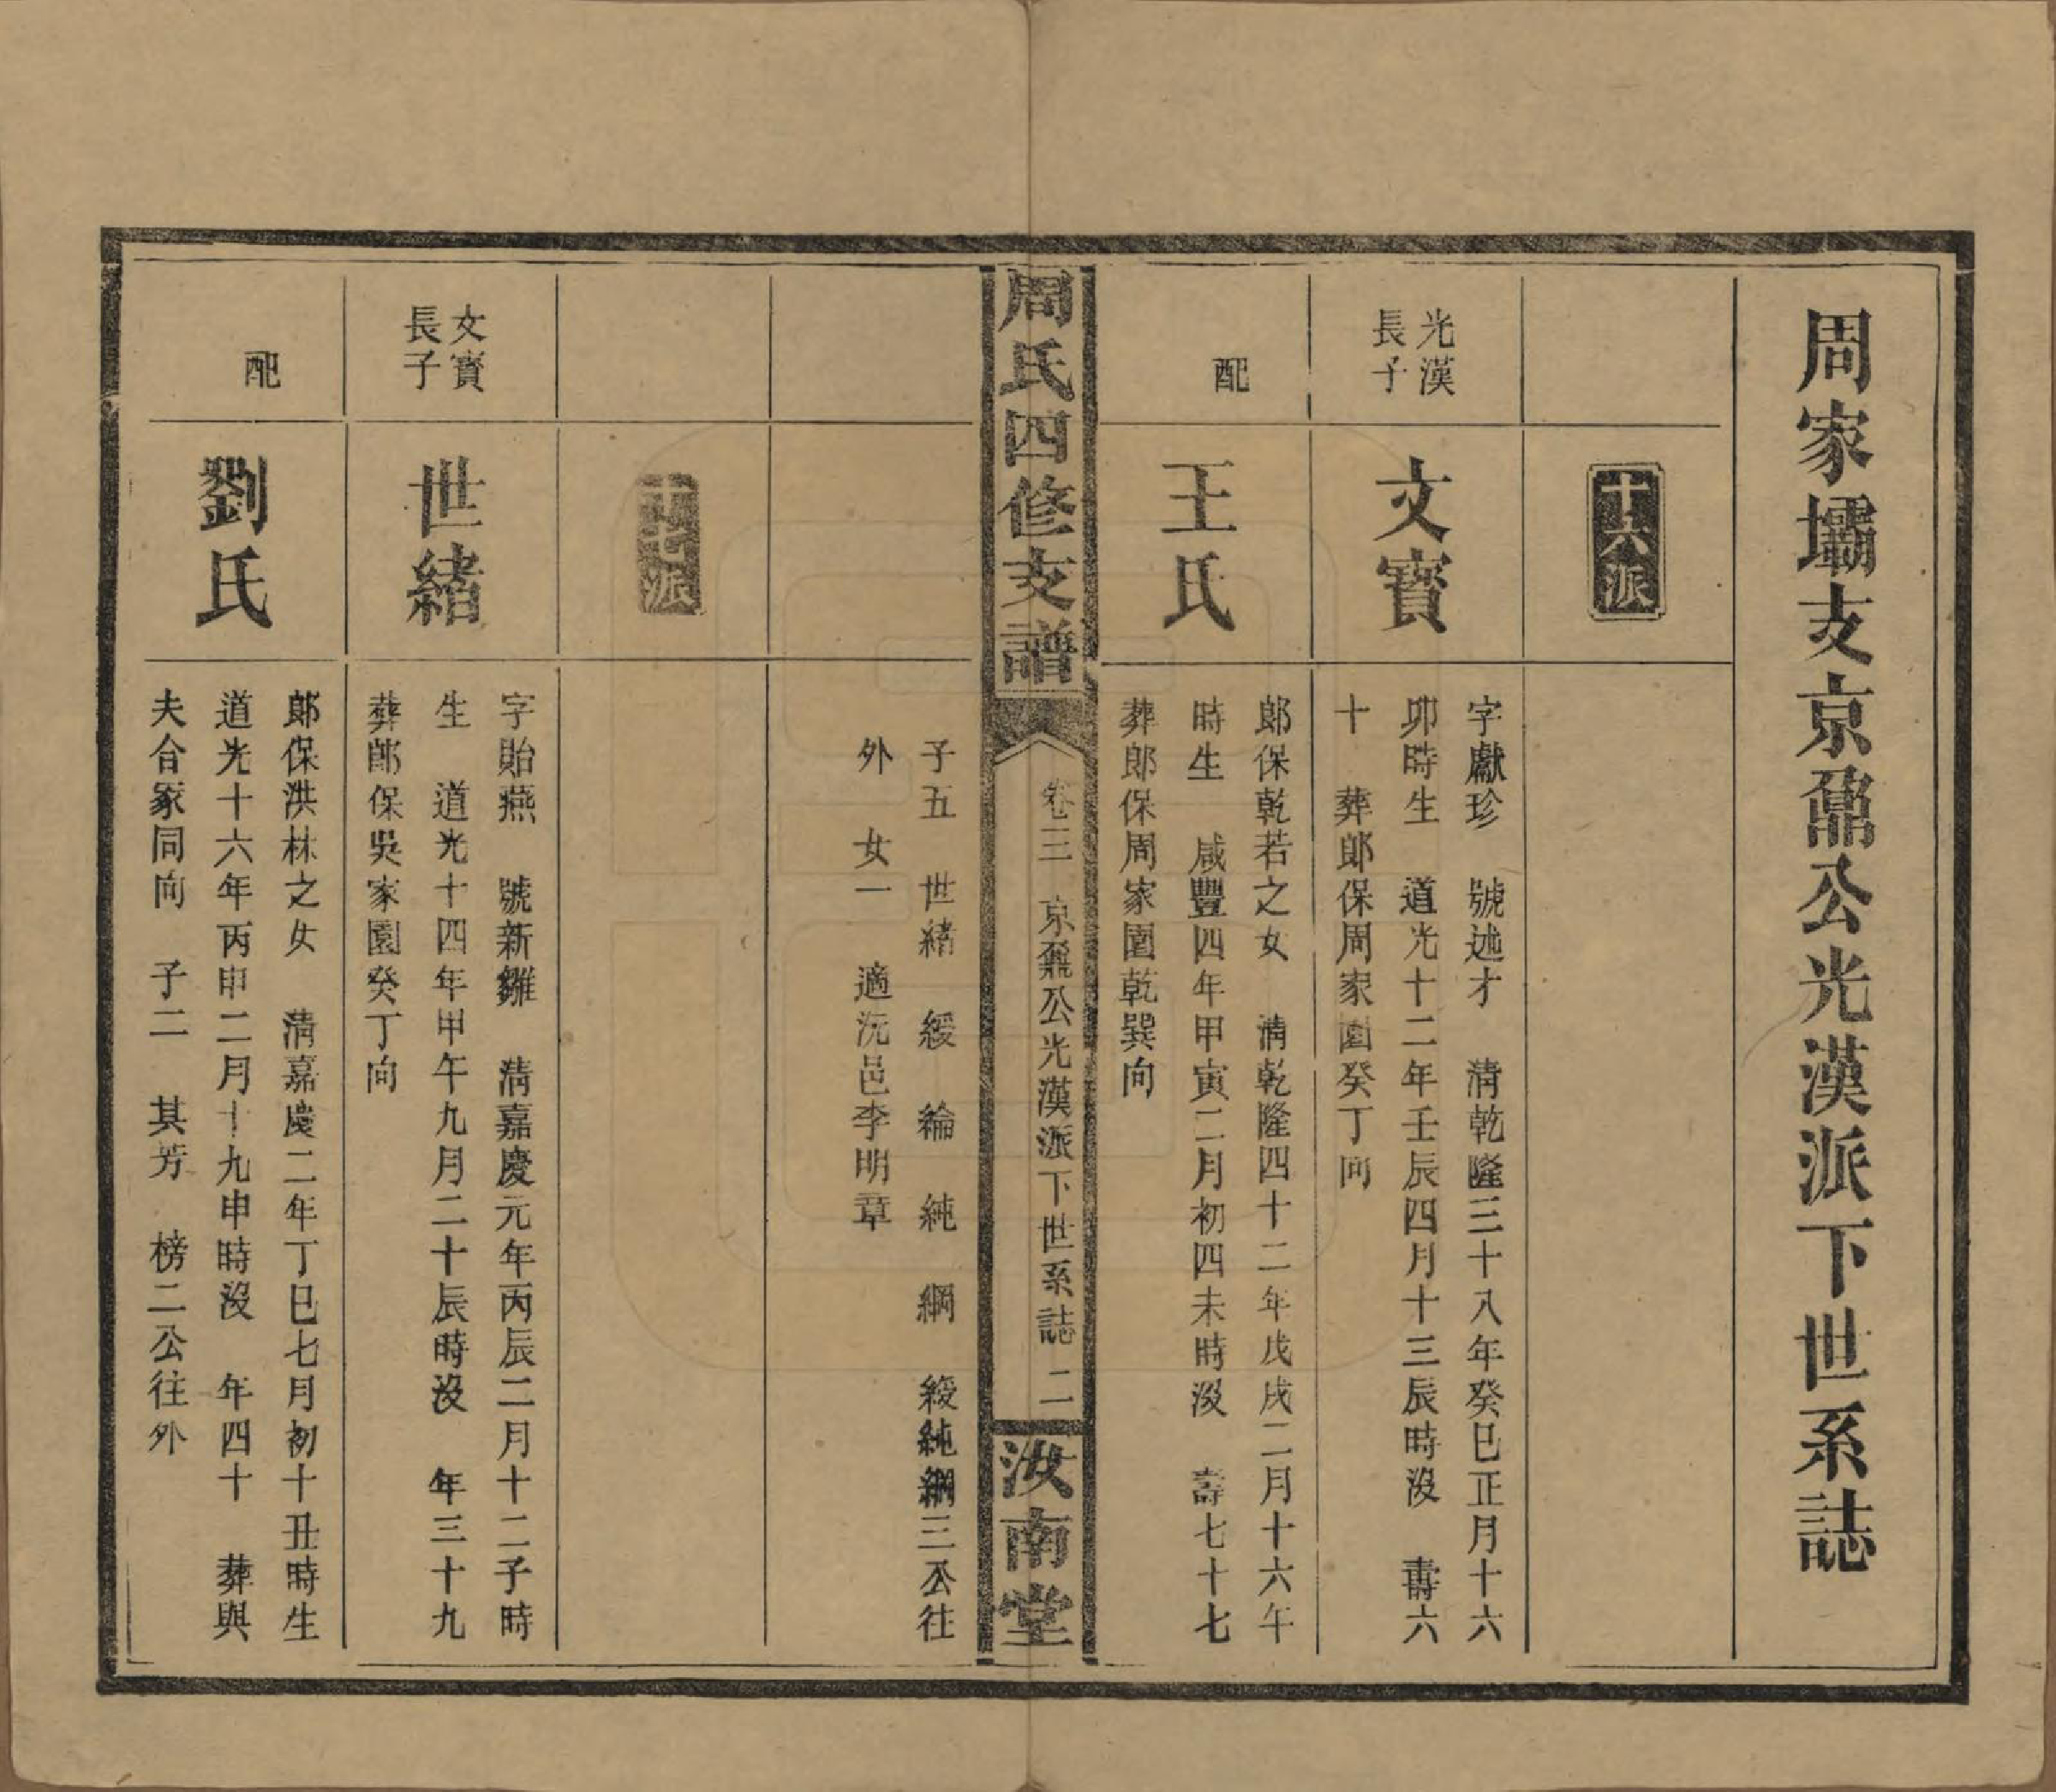 周家壩支京鼐公光漢派下世系誌
十六派
光漢
長子
文寶
字獻珍　號述才　清乾隆三十八年癸巳正月十六
卯時生　道光十二年壬辰四月十三辰時沒　壽六
十　葬郎保周家園癸丁向
配
王氏
郎保乾若之女　清乾隆四十二年戊戌二月十六午
時生　咸豐四年甲寅二月初四未時沒　壽七十七
葬郎保周家園乾巽向
周氏四修支譜
卷三　京鼐公光漢派下世系誌　二
汝南堂
子五　世緒　緩　綸　純　綱　緩純綱三公往
外　女一　適沅邑李明章
十七派
文寶
長子
世緒
字貽燕　號新雛　清嘉慶元年丙辰二月十二子時
生　道光十四年甲午九月二十辰時沒　年三十九
葬郎保吳家園癸丁向
配
劉氏
郎保洪林之女　清嘉慶二年丁巳七月初十丑時生
道光十六年丙申二月十九申時沒　年四十　葬與
夫合冢同向　子二　其芳　榜二公往外